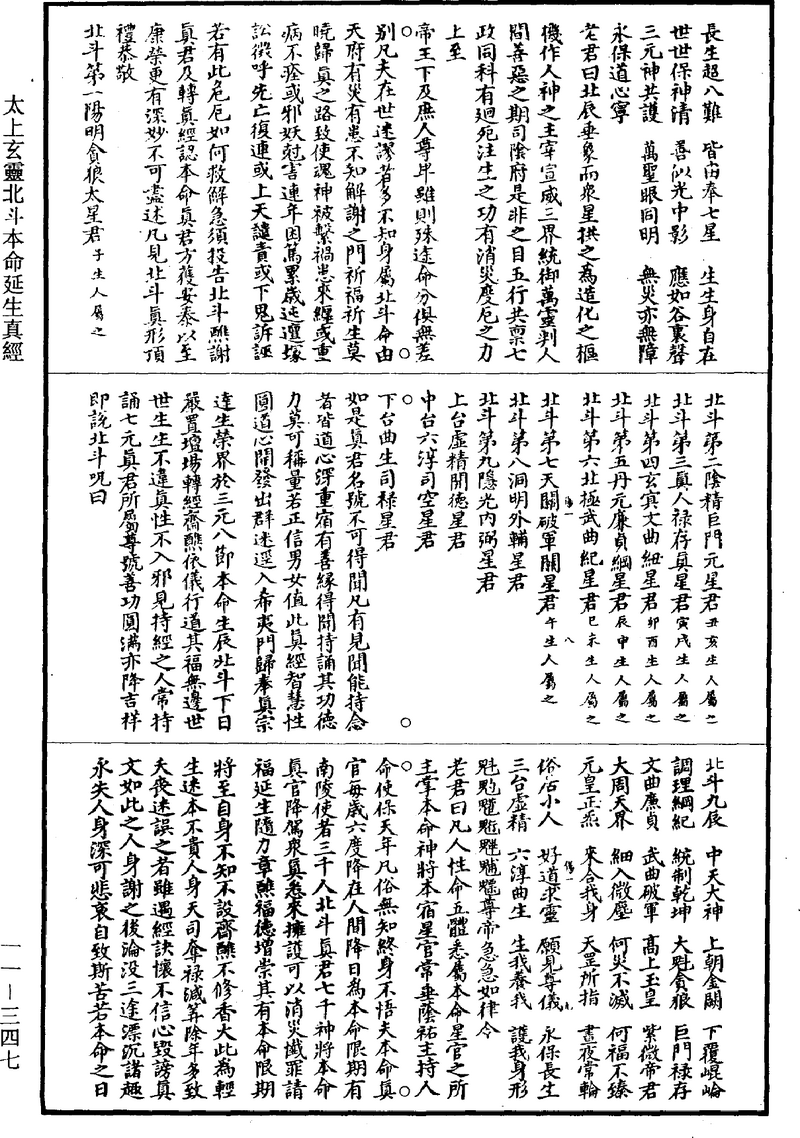 太上玄靈北斗本命延生真經
一一—三四七
長生超八難　皆由奉七星　生生身自在
世世保神清　善似光中影　應如谷裏聲
三元神共護　萬聖眼同明　無災亦無障
永保道心寧
老君曰北辰垂象而衆星拱之為造化之樞
機作人神之主宰宣威三界統御萬靈判人
間善惡之期司陰府是非之目五行共稟七
政同科有迴死注生之功有消災度厄之力
上至
帝王下及庶人尊卑雖則殊途命分俱無差
別凡夫在世迷謬者多不知身屬北斗命由
天府有災有患不知解謝之門祈福祈生莫
曉歸真之路致使魂神被繫禍患來纏或重
病不痊或邪妖尅害連年困篤累歲迍邅塚
訟徵呼先亡復連或上天譴責或下鬼訴誣
若有此危厄如何救解急須投告北斗醮謝
真君及轉真經認本命真君方獲安泰以至
康榮更有深妙不可盡述凡見北斗真形頂
禮恭敬
北斗第一陽明貪狼太星君子生人屬之
北斗第二陰精巨門元星君丑亥生人屬之
北斗第三真人祿存真星君寅戌生人屬之
北斗第四玄冥文曲紐星君卯酉生人屬之
北斗第五丹元廉貞綱星君辰申生人屬之
北斗第六北極武曲紀星君巳未生人屬之
北斗第七天關破軍關星君午生人屬之
北斗第八洞明外輔星君
北斗第九隱光內弼星君
上台虛精開德星君
中台六淳司空星君
下台曲生司祿星君
如是真君名號不可得聞凡有見聞能持念
者皆道心深重宿有善緣得聞持誦其功德
力莫可稱量若正信男女值此真經智慧性
圓道心開發出群迷逕入希夷門歸奉真宗
達生榮界於三元八節本命生辰北斗下日
嚴置壇場轉經齋醮依儀行道其福無邊世
世生生不違真性不入邪見持經之人常持
誦七元真君所屬尊號善功圓滿亦降吉祥
即說北斗咒曰
北斗九辰　中天大神　上朝金闕　下覆崐崘
調理綱紀　統制乾坤　大魁貪狼　巨門祿存
文曲廉貞　武曲破軍　高上玉皇　紫微帝君
大周天界　細入微塵　何災不滅　何福不臻
元皇正炁　來合我身　天罡所指　晝夜常輪
俗居小人　好道求靈　願見尊儀　永保長生
三台虛精　六淳曲生　生我養我　護我身形
魁𩲃䰢魓魒尊帝急急如律令
老君曰凡人性命五體悉屬本命星官之所
主掌本命神將本宿星官常垂蔭祐主持人
命使保天年凡俗無知終身不悟夫本命真
官每歲六度降在人間降日為本命限期有
南陵使者三千人北斗真君七千神將本命
真官降駕衆真悉來擁護可以消災懺罪請
福延生隨力章醮福德增崇其有本命限期
將至自身不知不設齋醮不修香火此為輕
生迷本不貴人身天司奪祿減筭除年多致
夭喪迷誤之者雖遇經訣懷不信心毀謗真
文如此之人身謝之後淪沒三途漂沉諸趣
永失人身深可悲哀自致斯苦若本命之日